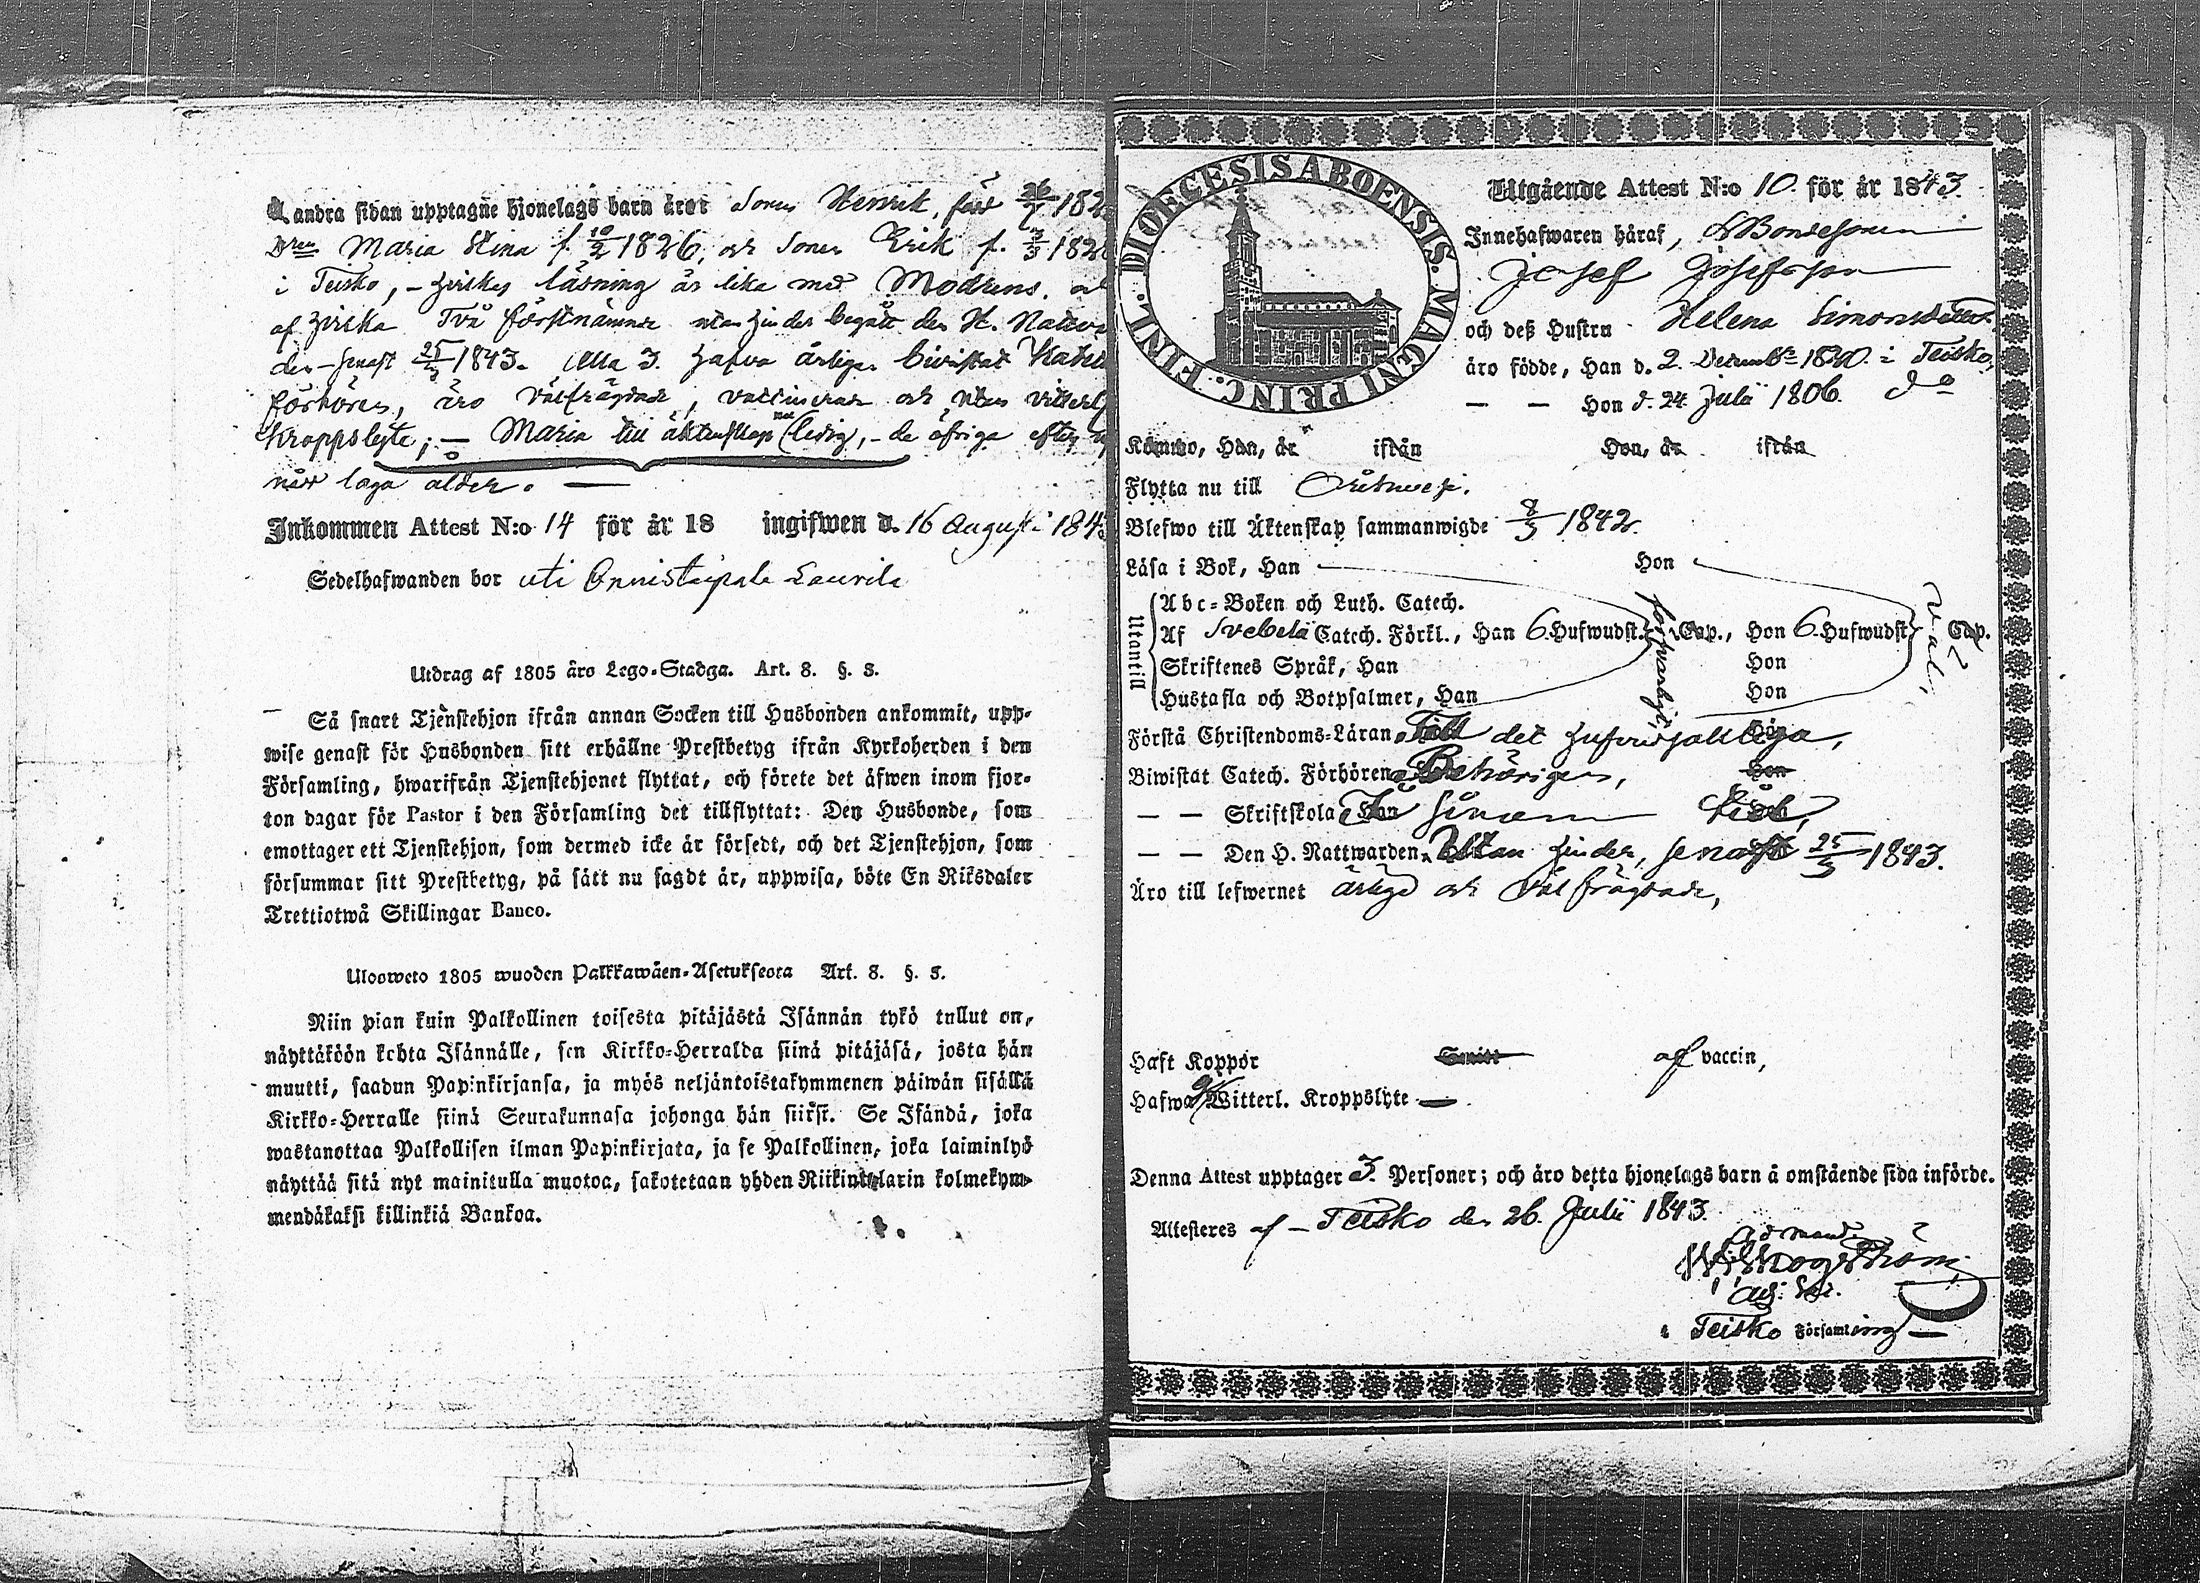 Å andra sidan upptagne hjonelags barn äro: Sonen Henrik, född 182
Dren Maria Stina f. 10/2 1826, och Sonen Erik f. 3/3 182
i Teisko, – hvilkas läsning är lika med Modrens.
af hvilka Två förstnämnde utan hinder begått den H. Nattva
den – senast 25/5 1843. Alla 3. hafva ärligen bivistat
förhören, äro välfrägdade, vaccinerade och utan vitterl
kroppslyte; – Maria till äktenskap ledig, – de öfriga efter
när laga ålder. —
Inkommen Attest N:o 14 för år 18 ingifwen d. 16 Augusti 184
Sedelhafwanden bor uti Onnistaipale Laurila
Utdrag af 1805 års Lego-Stadga. Art. 8. §. 3.
Så snart Tjenstehjon ifrån annan Socken till Husbonden ankommit, upp-
wise genast för Husbonden sitt erhållne Prestbetyg ifrån Kyrkoherden i den
Församling, hwarifrån Tjenstehjonet flyttat, och förete det äfwen inom fjor-
ton dagar för Pastor i den Församling det tillflyttat: Den Husbonde, som
emottager ett Tjenstehjon, som dermed icke är försedt, och det Tjenstehjon, som
försummar sitt Prestbetyg, på sätt nu sagdt är, uppwisa, böte En Riksdaler
Trettiotwå Skillingar Banco.
Ulosweto 1805 wuoden Palkkawäen-Asetuksesta Art. 8. §. 3.
Niin pian kuin Palkollinen toisesta pitäjästä Isännän tykö tullut on,
näyttäköön kohta Isännälle, sen Kirkko-Herralda siinä pitäjäsä, josta hän
muutti, saadun Papinkirjansa, ja myös neljäntoistakymmenen päiwän sisällä
Kirkko-Herralle siinä Seurakunnasa johonga hän siirsi. Se Isändä, joka
wastanottaa Palkollisen ilman Papinkirjata, ja se Palkollinen, joka laiminlyö
näyttää sitä nyt mainitulla muotoa, sakotetaan yhden Riikintalarin kolmekym-
mendäkaksi killinkiä Bankoa.
DIOECESIS ABOENSIS. MAGNI PRINC. FINL.
Utgående Attest N:o 10. för år 1843.
Innehafwaren häraf, Bondesonen
Josef Josefsson
och deß Hustru Helena Simonsdotter
äro födde, Han d. 2. December 1820. i Teisko,
— — Hon d. 24 Julii 1806. do
Kommo, Han, år ifrån Hon, år ifrån
Flytta nu till Orihvesi.
Blefwo till Äktenskap sammanwigde 8/5 1842.
Läsa i Bok, Han Hon
Utantill
Abc-Boken och Luth. Catech.
Af Svebelii Catech. Förkl., Han 6. Hufwudst. Cap., Hon 6. Hufwudst. Cap.
försvarligt, väl,
Skriftenes Språk, Han Hon
Hustafla och Botpsalmer, Han Hon
Förstå Christendoms-Läran Till det hufvudsakliga,
Biwistat Catech. Förhören Behörigen,
— — Skriftskola Han I sinom tid,
— — Den H. Nattwarden Utan hinder, senast 25/5 1843.
Äro till lefwernet ärlige och välfrägdade,
Haft Koppor Smitt af vaccin,
Hafwa ej Witterl. Kroppslyte —.
Denna Attest upptager 3. Personer; och äro detta hjonelags barn å omstående sida införde.
Attesteres af – Teisko den 26. Julii 1843.
Ad mand.
i Teisko Församling —